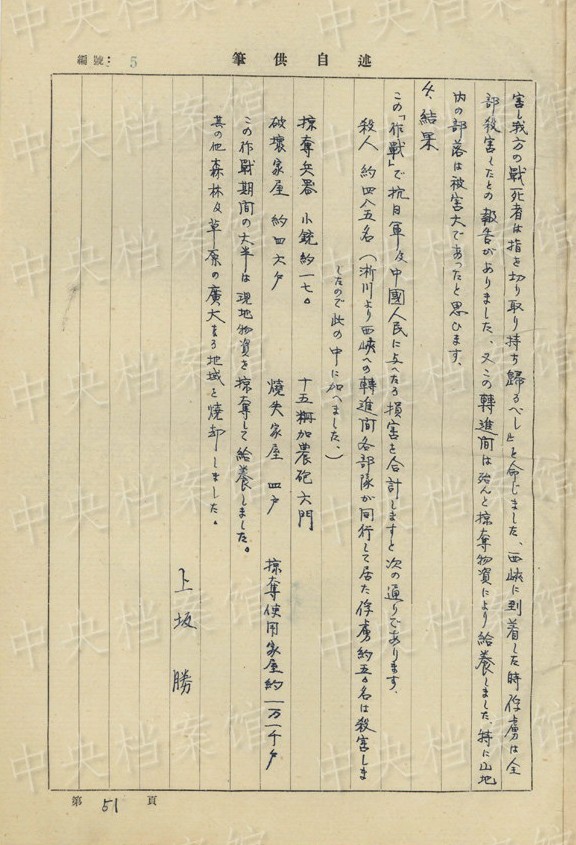 編號：5
筆供自述
害し我方の戦死者は指を切り取り持ち帰るべし』と命じました、西峡に到着した時俘虜は全
部殺害したとの報告がありました、又この轉進間は殆んど掠奪物資により給養しました、特に山地
内の部落は被害大であったと思ひます、
4、結果
この「作戰」で抗日軍及中國人民に与へたる損害を合計しますと次の通りであります、
殺人 約四八五名（淅川より西峡への轉進間各部隊が同行して居た俘虜約五〇名は殺害しま
したので此の中に加へました、）
掠奪兵器 小銃約一七〇 十五糎加農砲六門
破壊家屋 約四六戸 燒失家屋 四戸 掠奪使用家屋約一万一千戸
この作戰期間の大半は現地物資を掠奪して給養しました。
其の他森林及草原の廣大なる地域を焼却しました。
上坂勝
第51頁
中央档案馆